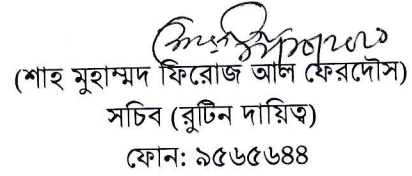 (শাহ মুহাম্মদ ফিরোজ আল ফেরদৌস)
সচিব (রুটিন দায়িত্ব)
ফোন: ৯৫৬৫৬৪৪